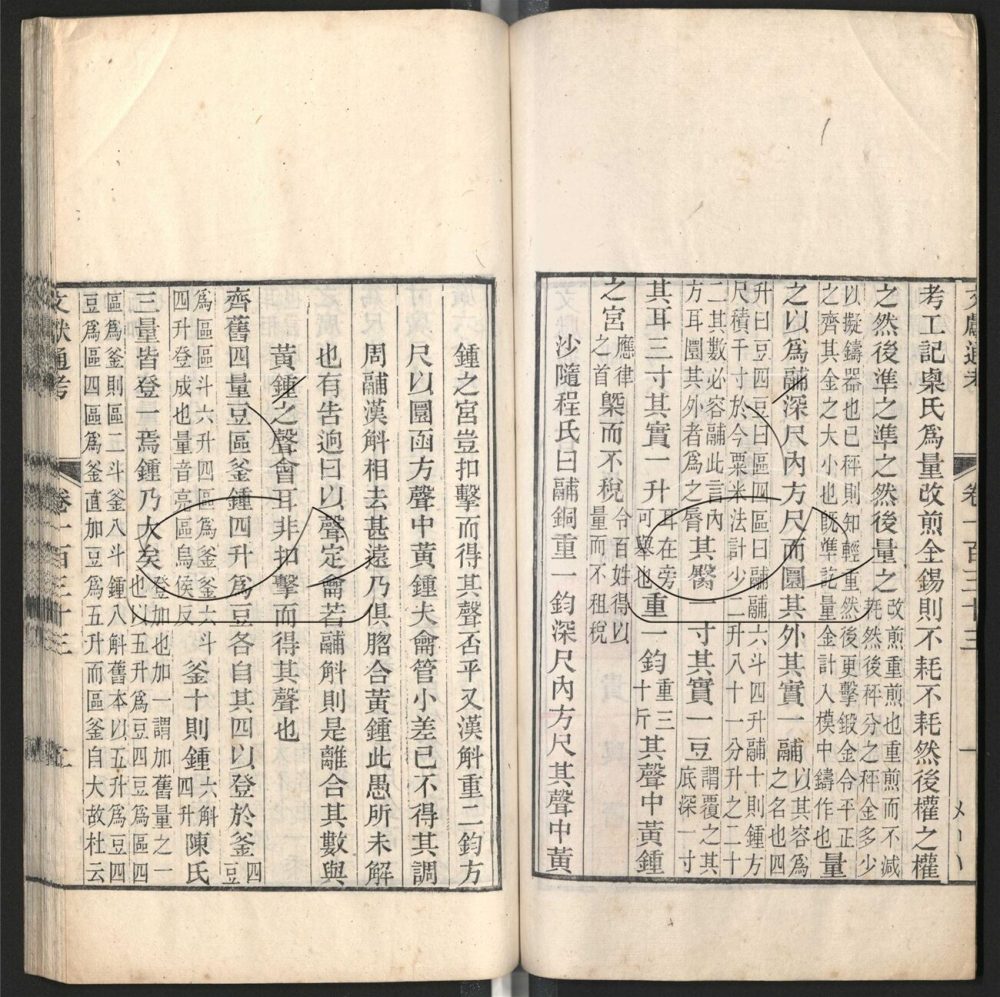 文獻通考
卷一百三十三
考工記㮚氏爲量改煎金錫則不耗不耗然後權之權
之然後準之準之然後量之改煎重煎也重煎而不減
耗然後秤分之秤金多少
以擬鑄器也已秤則知輕重然後更擊鍛金令平正
之齊其金之大小也旣準訖量金計入模中鑄作也量
之以爲鬴深尺內方尺而圜其外其實一鬴以其容爲
之名也四
升曰豆四豆曰區四區曰鬴鬴六斗四升鬴十則鍾方
尺積千寸於今粟米法計少二升八十一分升之二十
二其數必容鬴此言內
方耳圜其外者爲之脣其臋一寸其實一豆謂覆之其
底深一寸
其耳三寸其實一升耳在旁
可舉也重一鈞重三
十斤其聲中黃鍾
之宮應律
之首㮣而不稅令百姓得以
量而不租稅
沙隨程氏曰鬴銅重一鈞深尺內方尺其聲中黃
鍾之宮豈扣擊而得其聲否乎又漢斛重二鈞方
尺以圜函方聲中黃鍾夫龠管小差已不得其調
周鬴漢斛相去甚遠乃俱脗合黃鍾此愚所未解
也有告逈曰以聲定龠若鬴斛則是離合其數與
黃鍾之聲會耳非扣擊而得其聲也
齊舊四量豆區釜鍾四升爲豆各自其四以登於釜四
豆
爲區區斗六升四區爲釜釜六斗
四升登成也量音亮區烏侯反釜十則鍾六斛
四升陳氏
三量皆登一焉鍾乃大矣登加也加一謂加舊量之一
也以五升爲豆四豆爲區四
區爲釜則區二斗釜八斗鍾八斛舊本以五升爲豆四
豆爲區四區爲釜直加豆爲五升而區釜自大故杜云
文獻通考
卷一百三十三